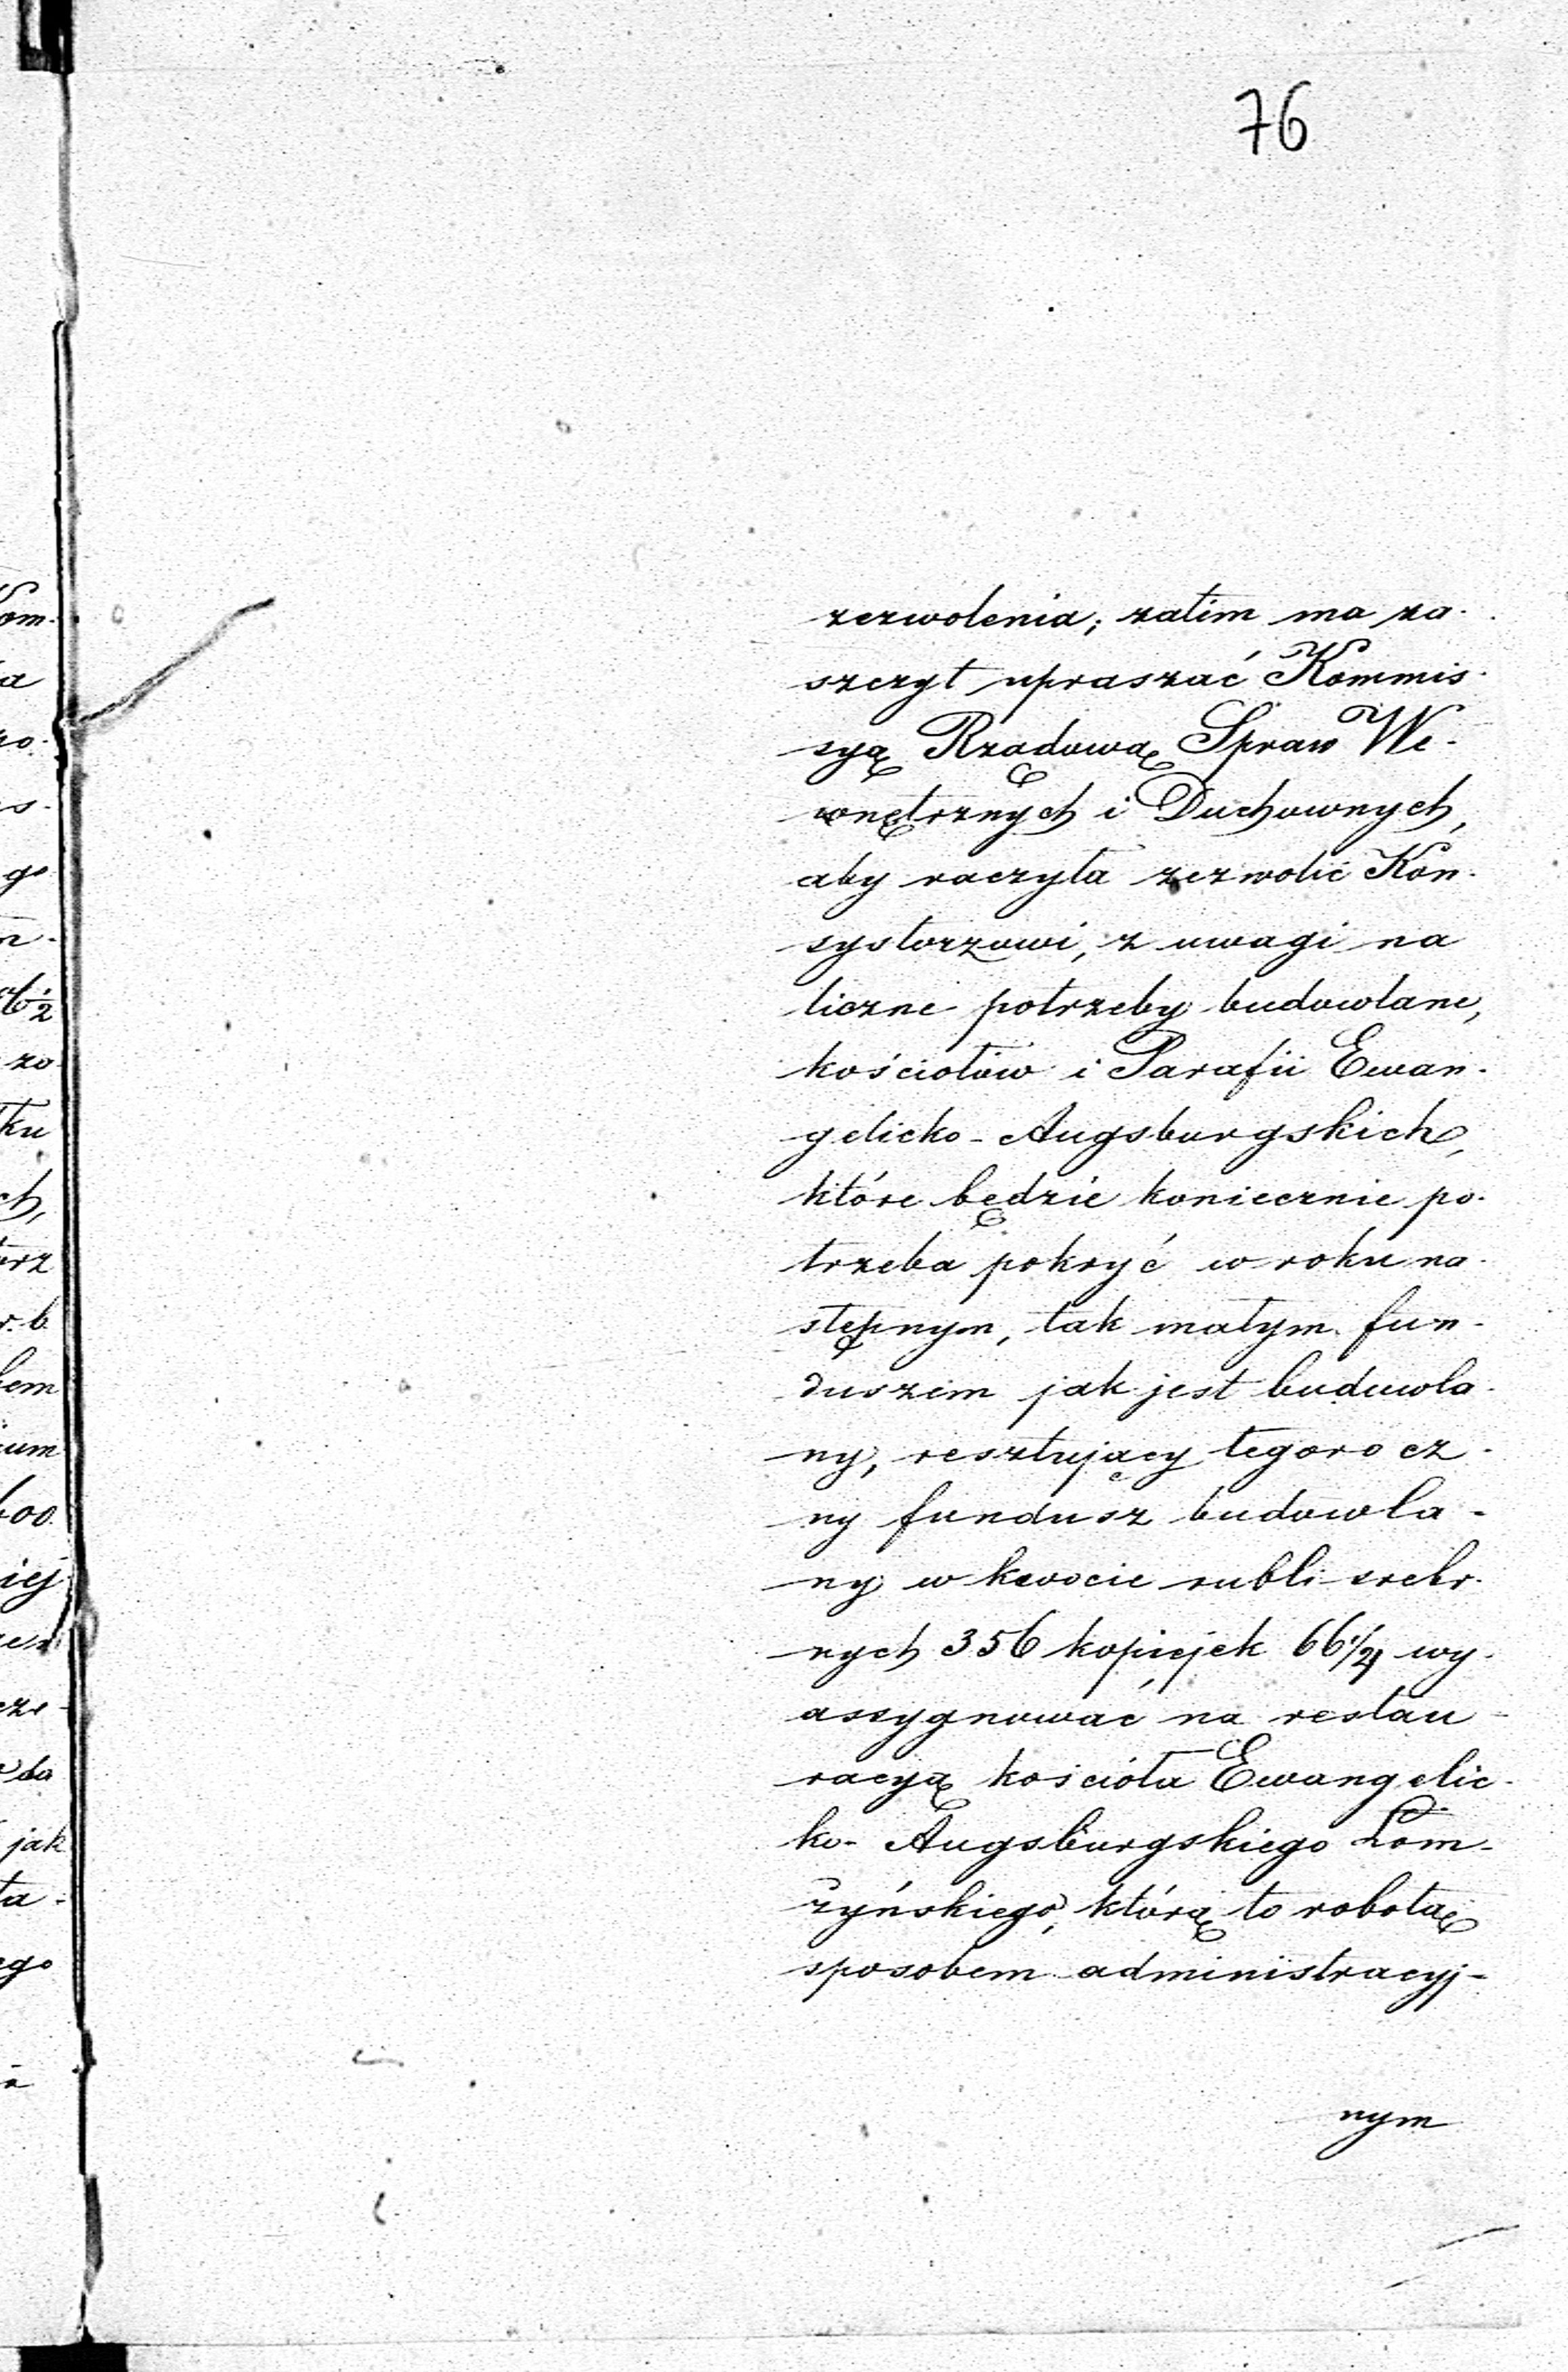 76
zezwolenia; zatim ma za-
szczyt upraszać Kommis-
syą Rządową Spraw We-
wnętrznych i Duchownych,
aby raczyła zezwolić Kon-
systorzowi, z uwagi na
liczne potrzeby budowlane,
kościołów i Parafii Ewan-
gelicko-Augsburgskich,
które będzie koniecznie po-
trzeba pokryć w roku na-
stępnym, tak małym fun-
duszem jak jest budowla-
ny, resztujący tegorocz-
ny fundusz budowla-
ny w kwocie rubli srebr-
nych 356 kopiejek 66 1/2 wy-
assygnować na restau-
racyą kościoła Ewangelic-
ko-Augsburgskiego Łom-
żyńskiego, którą to robotę
sposobem administracyj-
nym